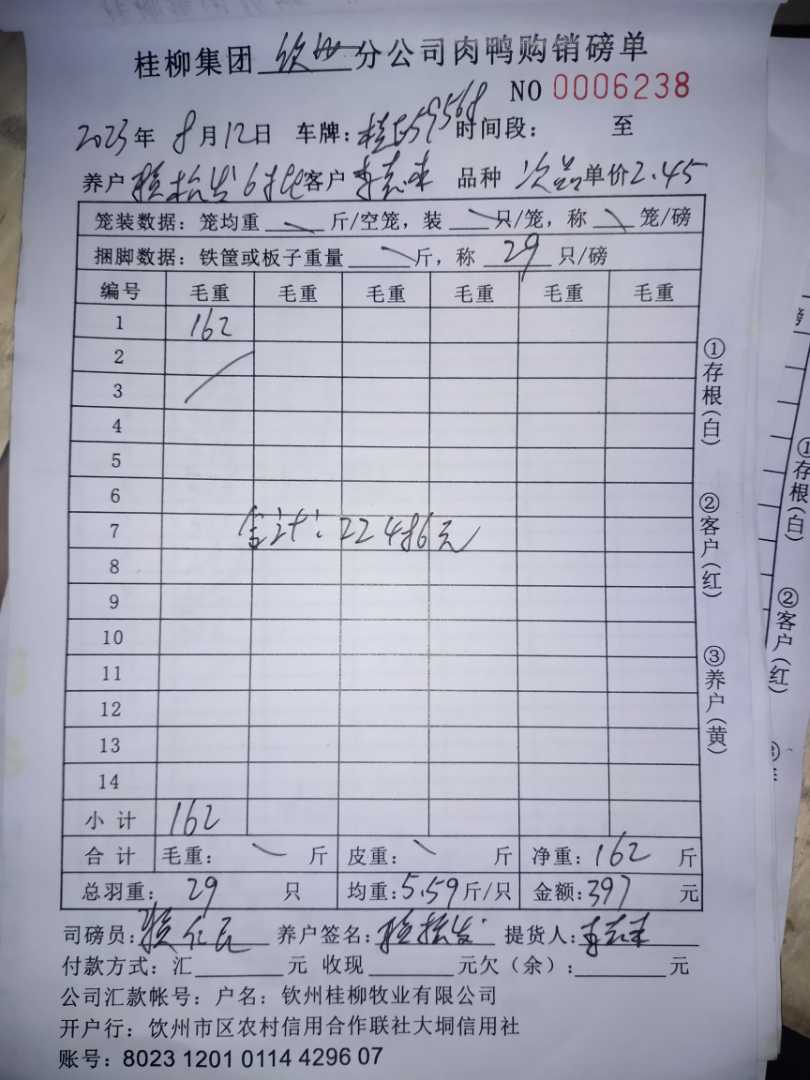 桂柳集团 钦州 分公司肉鸭购销磅单
NO 0006238
2023年 8月12日 车牌: 时间段: 至
养户 客户 李志来 品种 次品 单价2.45
笼装数据: 笼均重 斤/空笼, 装 只/笼, 称 笼/磅
捆脚数据: 铁筐或板子重量 斤, 称 29 只/磅
编号 毛重 毛重 毛重 毛重 毛重 毛重
1 162
2
3
4
5
6
7 合计: 22486元
8
9
10
11
12
13
14
小计 162
合计 毛重: 斤 皮重: 斤 净重: 162 斤
总羽重: 29 只 均重: 5.59斤/只 金额: 397 元
司磅员: 养户签名: 提货人: 李志来
付款方式: 汇 元 收现 元欠(余): 元
公司汇款帐号: 户名: 钦州桂柳牧业有限公司
开户行: 饮州市区农村信用合作联社大垌信用社
账号: 8023 1201 0114 4296 07
①存根(白)
②客户(红)
③养户(黄)
①存根(白)
②客户(红)